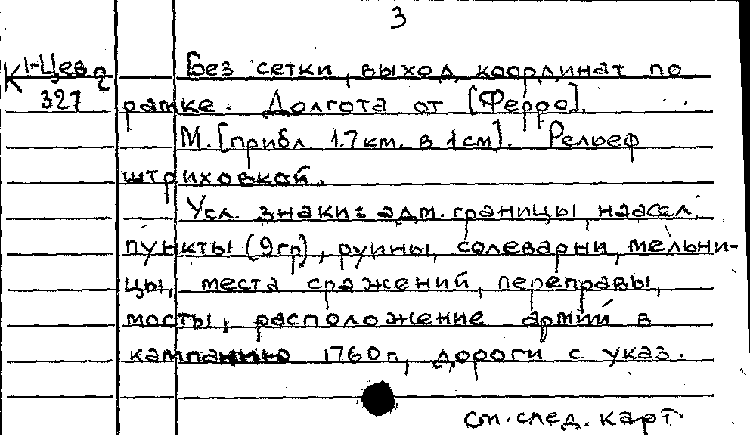 3
К 1-Цев 2
327
Без сетки, выход координат по
рамке. Долгота от [Ферро].
М. [прибл 1.7 км. в 1 см]. Рельеф
штриховкой.
Усл. знаки: адм. границы, наасел.
пункты (9гр), руины, солеварни, мельни-
цы, места сражений, переправы,
мосты, расположение армий в
кампанию 1760 г., дороги с указ.
см. след. карт.